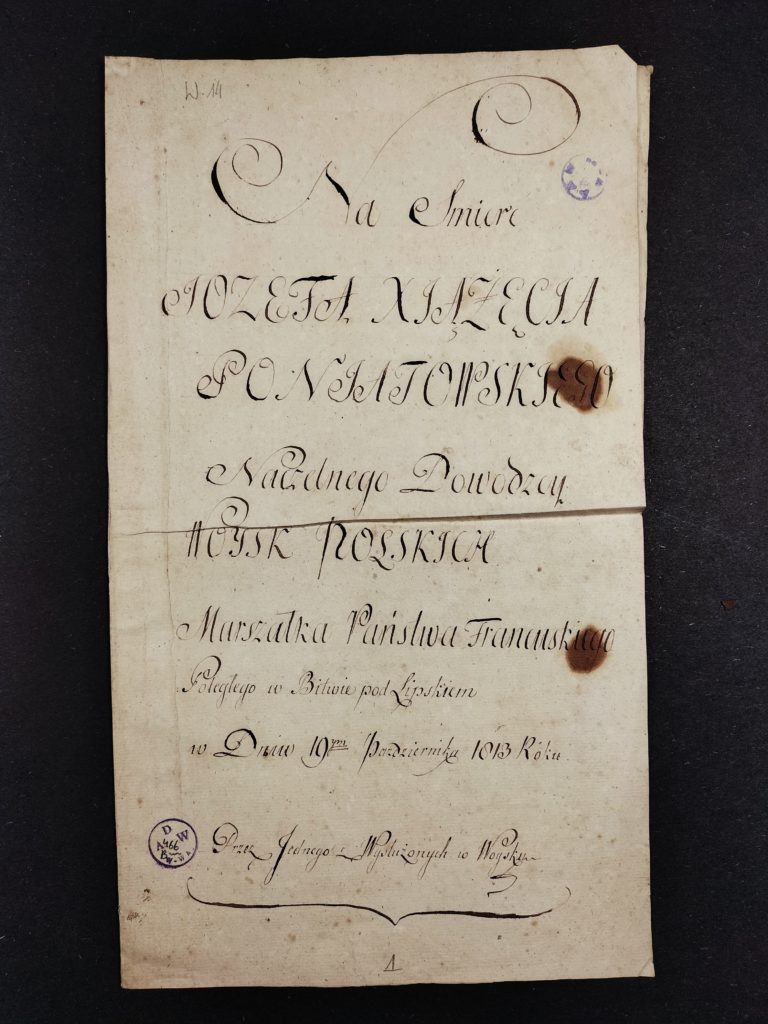 W. 14
Na Smierć
JOZEFA XIĄŻĘCIA
PONIATOWSKIEGO
Naczelnego Dowodzcy
WOYSK POLSKICH
Marszałka Państwa Francuskiego
Poległego w Bitwie pod Lipskiem
w Dniu 19ym Października 1813 Roku
Przez Jednego z Wysłużonych w Woysku
A D W
466
1